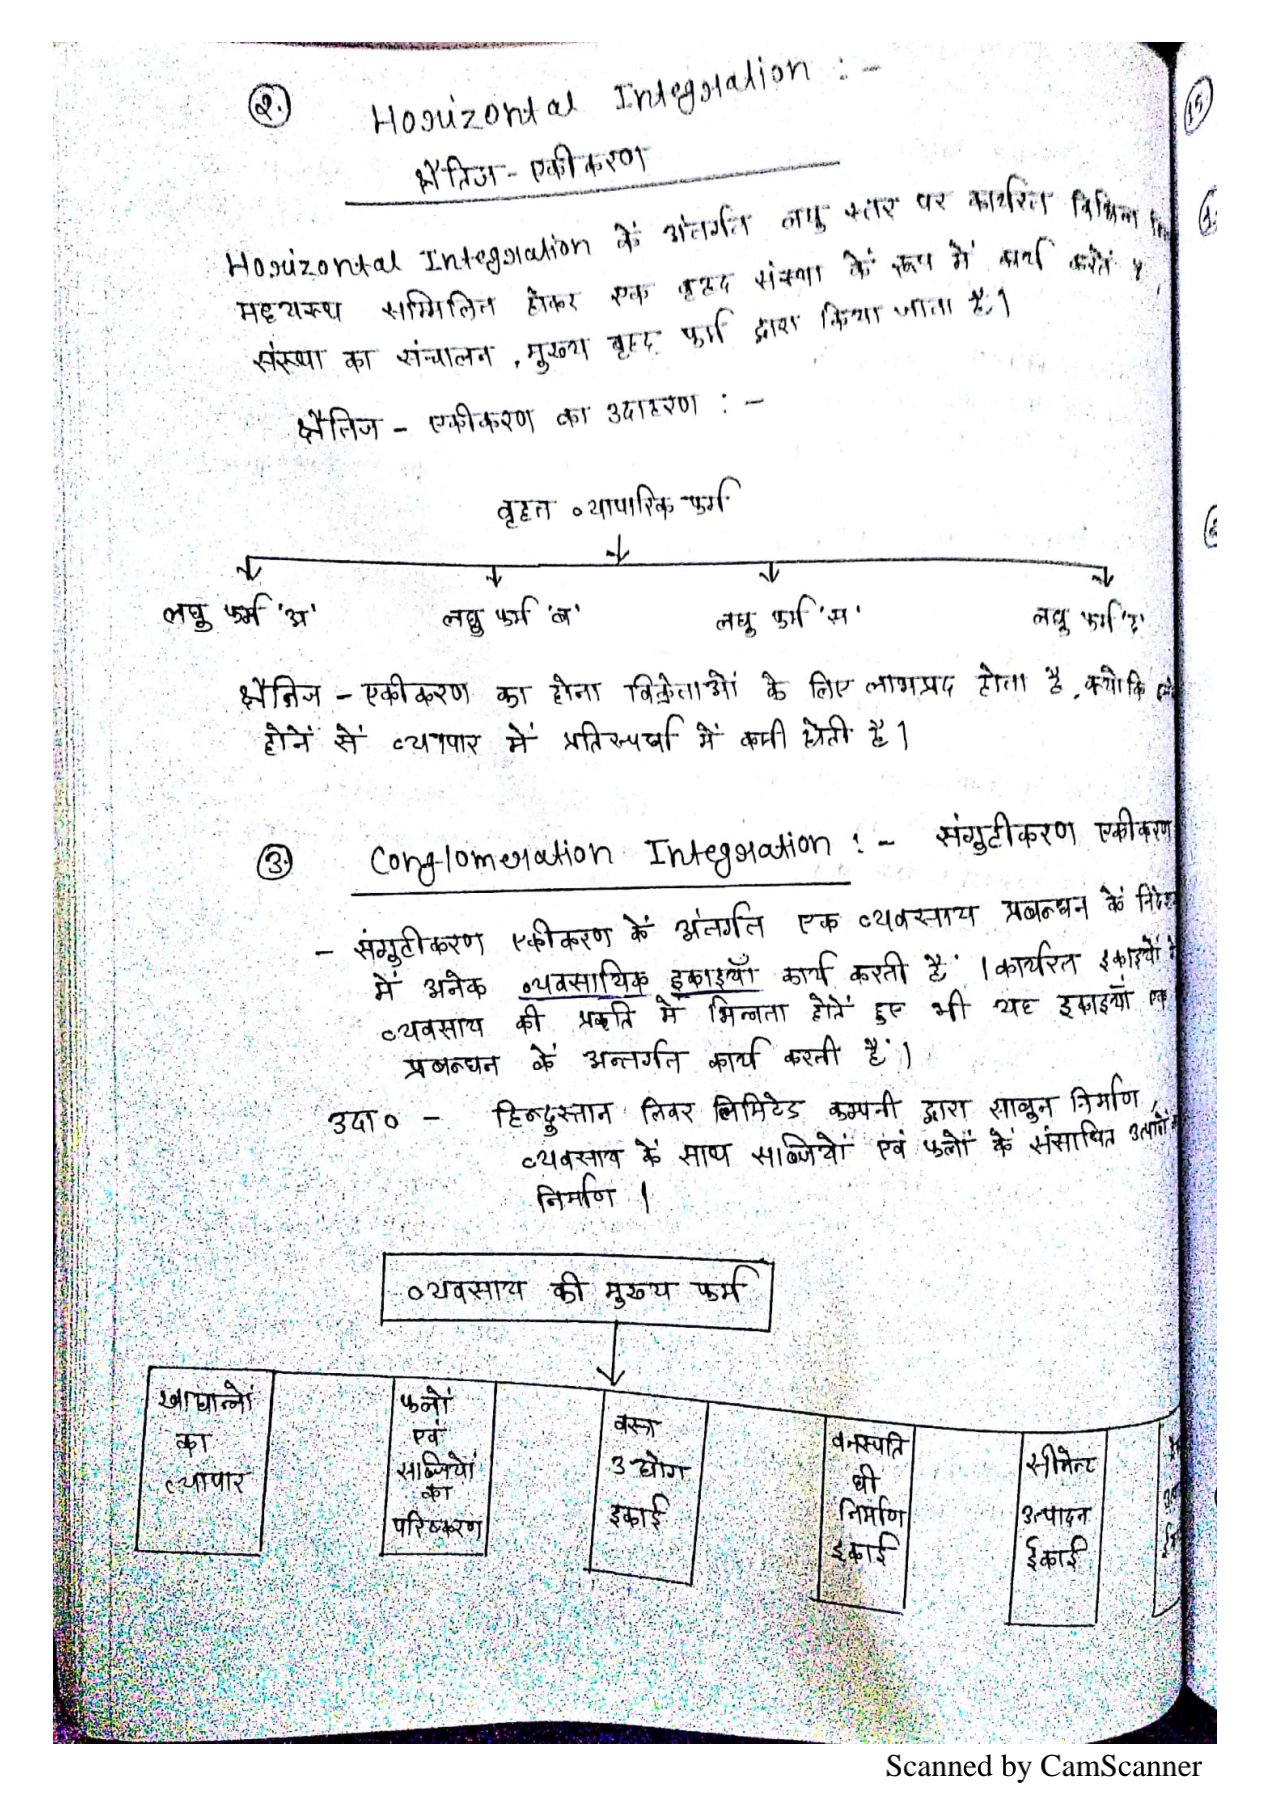 2.
Horizontal Integration : -
क्षैतिज - एकीकरण
Horizontal Integration कें अंतर्गत लघु स्तर पर कार्यरित विभिन्न
मध्यस्थ सम्मिलित होकर एक वृहद संस्था कें रूप में कार्य करतें
संस्था का संचालन, मुख्य वृहद फर्म द्वारा किया जाता है।
क्षैतिज - एकीकरण का उदाहरण : -
वृहत व्यापारिक फर्म
लघु फर्म 'अ' लघु फर्म 'ब' लघु फर्म 'स' लघु फर्म 'द'
क्षैतिज - एकीकरण का होना विक्रेताओं के लिए लाभप्रद होता है, क्योकि
होनें सें व्यापार में प्रतिस्पर्धा में कमी होती है।
3.
Conglomeration Integration : - संगुटीकरण एकीकरण
- संगुटीकरण एकीकरण कें अंतर्गत एक व्यवसाय प्रबन्धन कें
में अनेक व्यवसायिक इकाइयाँ कार्य करती हैं । कार्यरित इकाइयों
व्यवसाय की प्रकृति में भिन्नता होतें हुए भी यह इकाइयाँ एक
प्रबन्धन कें अन्तर्गत कार्य करती हैं ।
उदा० - हिन्दुस्तान लिवर लिमिटेड कम्पनी द्वारा साबुन निर्माण,
व्यवसाय कें साथ सब्जियों एवं फलों कें संसाधित
निर्माण ।
व्यवसाय की मुख्य फर्म
खाद्यान्नों
का
व्यापार
फलों
एवं
सब्जियों
का
परिष्करण
वस्त्र
उद्योग
इकाई
वनस्पति
घी
निर्माण
इकाई
सीमेन्ट
उत्पादन
ईकाई
15
Scanned by CamScanner